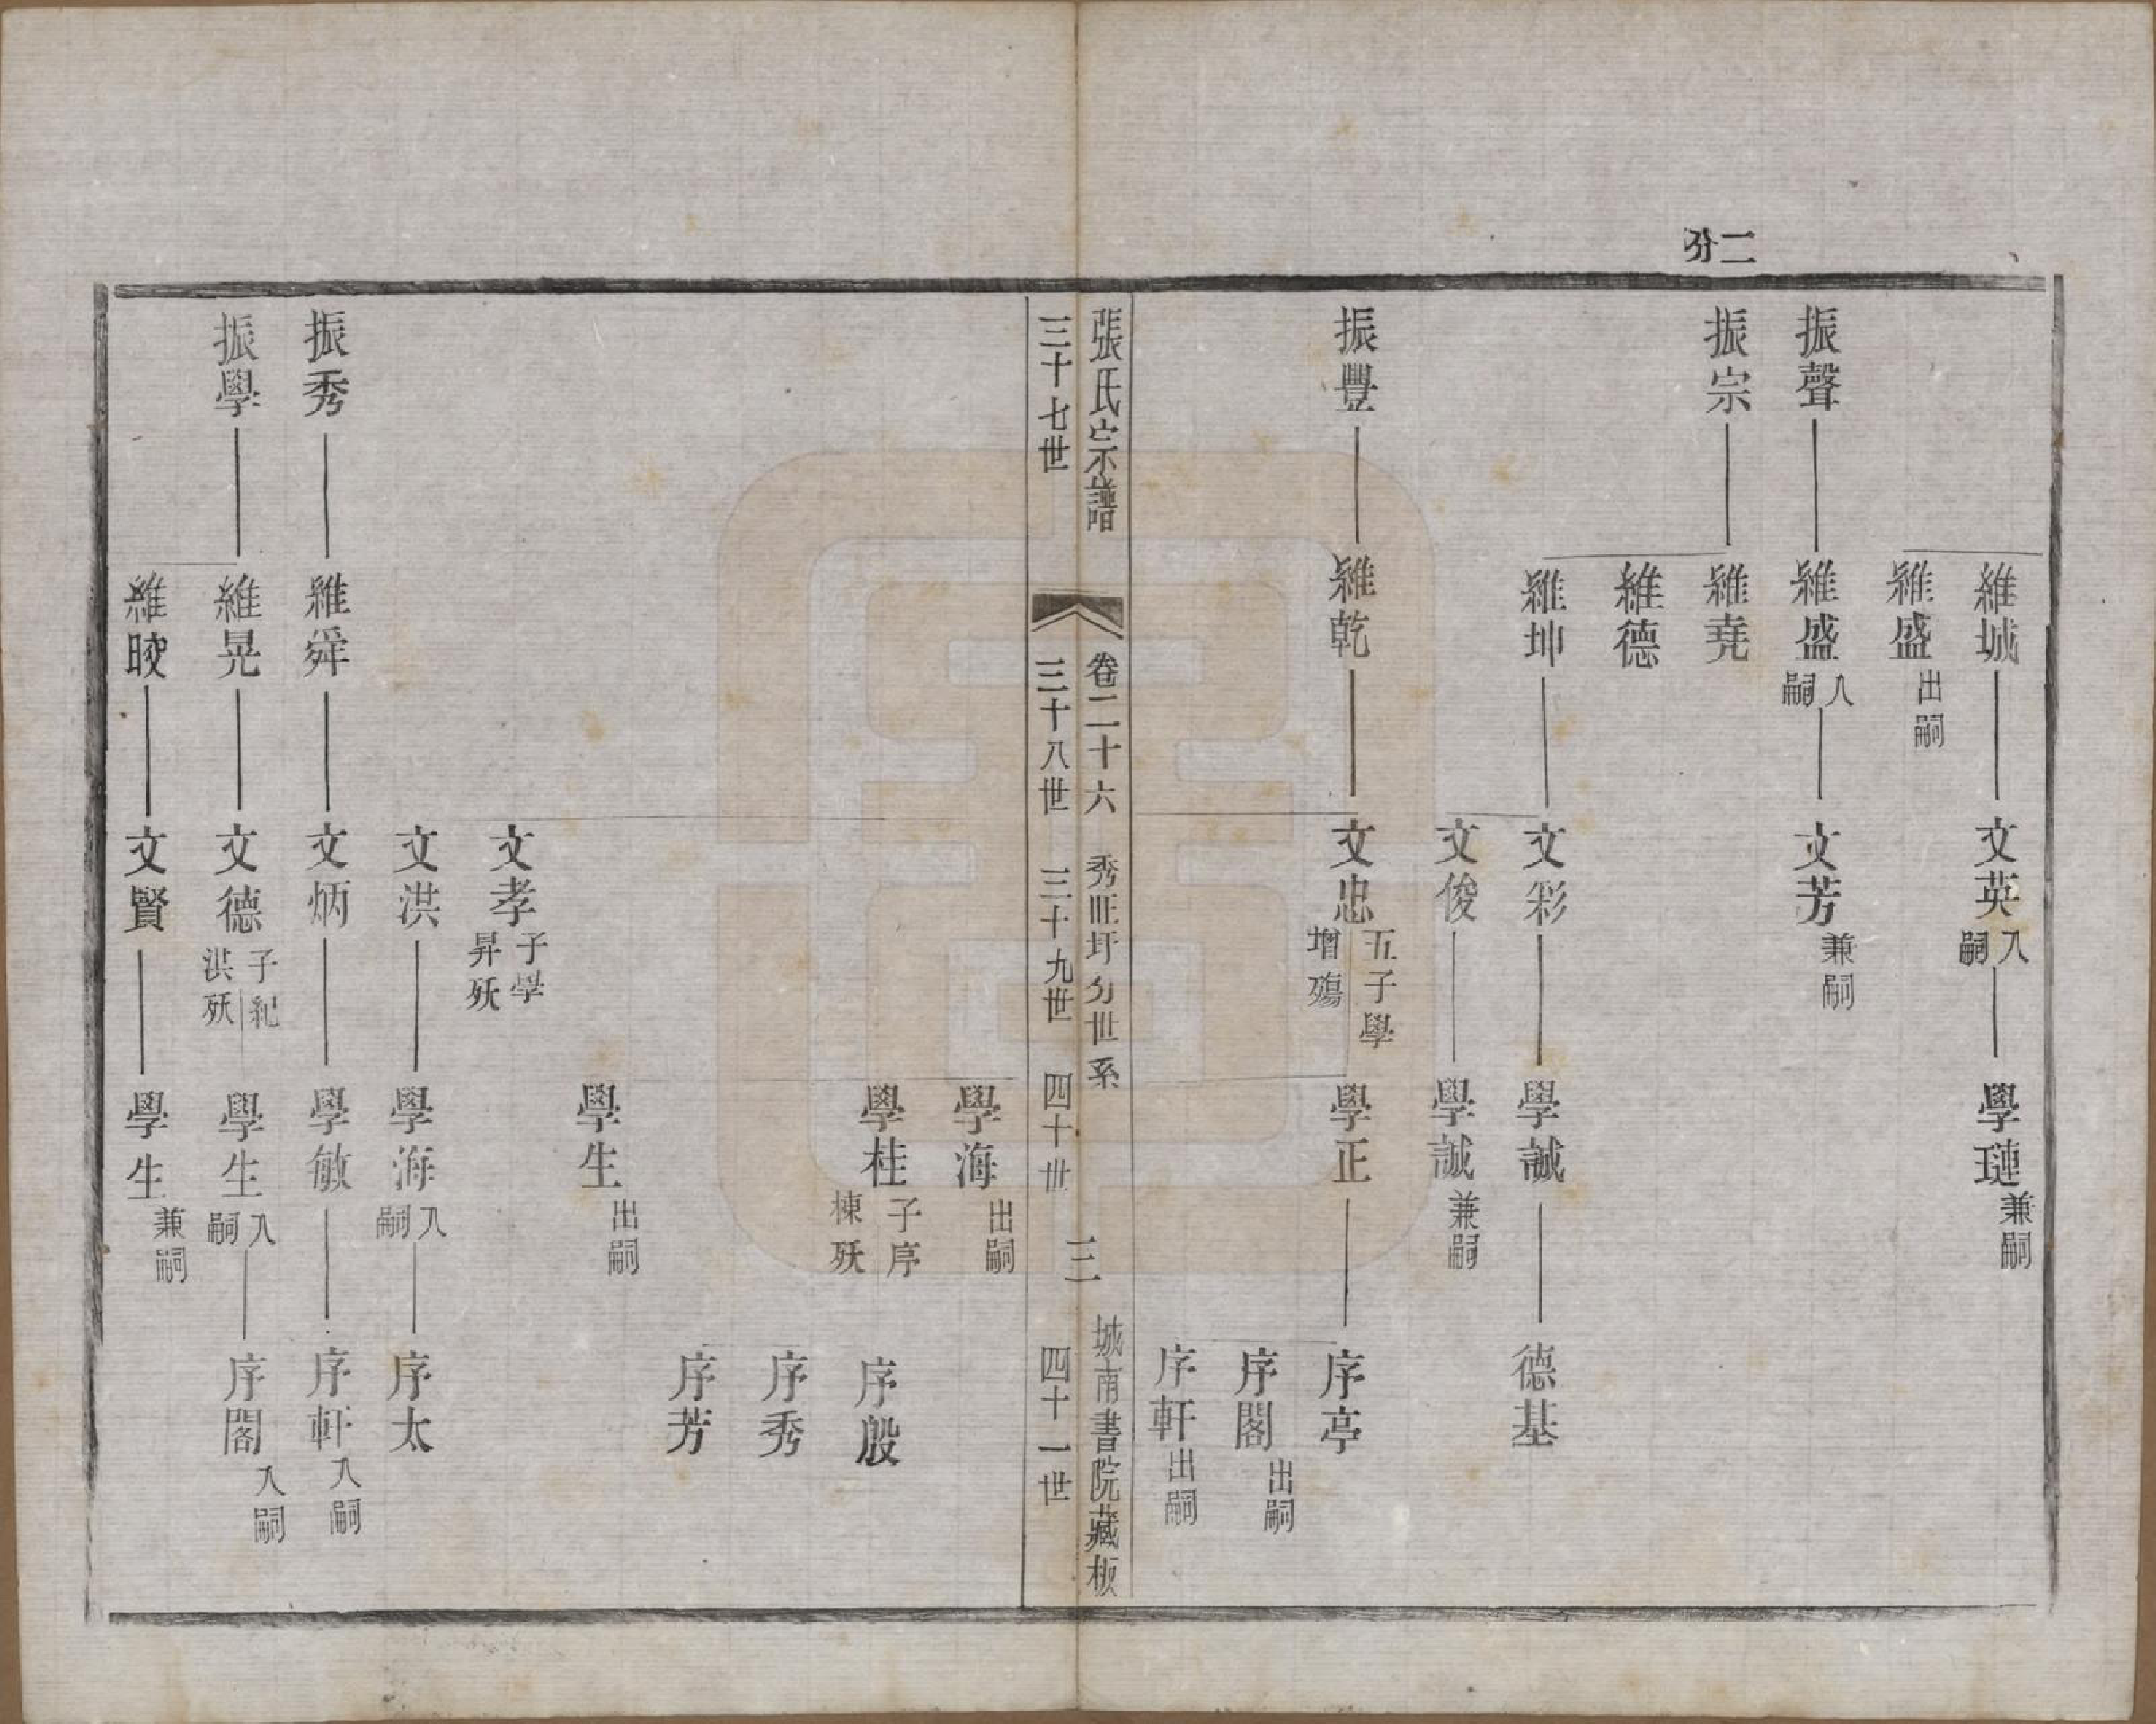 二分
維城 文英入嗣 學璉兼嗣
維盛出嗣
振聲 維盛入嗣 文芳兼嗣
振宗 維堯
維德
維坤 文彩 學誠 德基
文俊 學誠兼嗣
振豐 維乾 文忠五子學增殤 學正 序亭
序閣出嗣
序軒出嗣
張氏宗譜 卷二十六 秀旺圩分世系 三 城南書院藏板
三十七世 三十八世 三十九世 四十世 四十一世
學海出嗣
學桂子序棟殀 序殷
序秀
序芳
學生出嗣
文孝子學昇殀
文洪 學海入嗣 序太
振秀 維舜 文炳 學敏 序軒入嗣
振學 維晃 文德子紀洪殀 學生入嗣 序閣入嗣
維晈 文賢 學生兼嗣